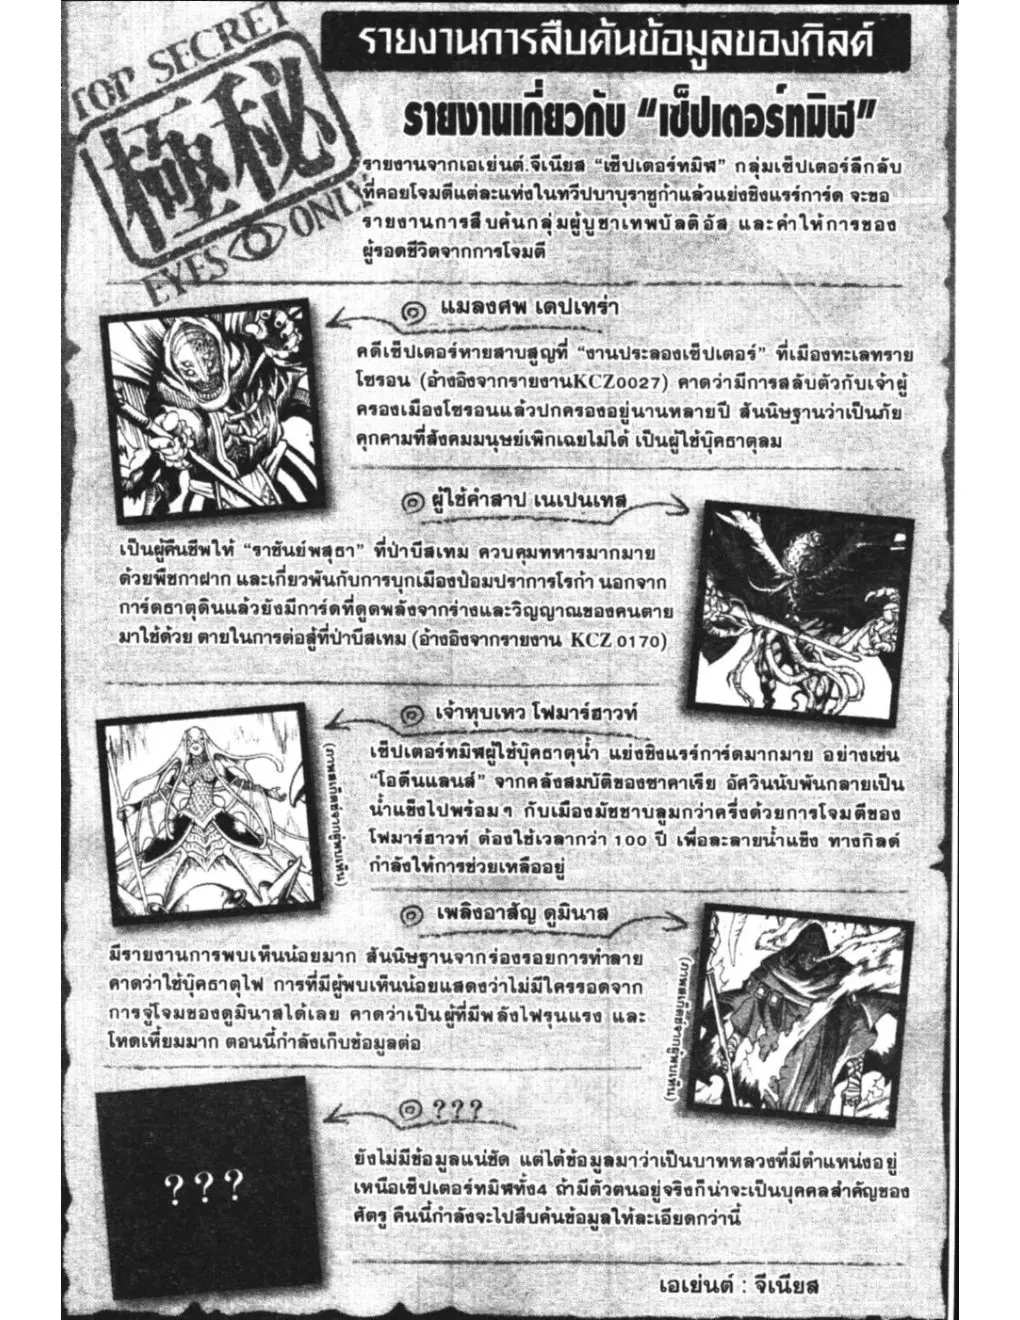 TOP SECRET
極秘
EYES ONLY
รายงานการสืบค้นข้อมูลของกิลด์
รายงานเกี่ยวกับ “เซ็ปเตอร์ทมิฬ”
รายงานจากเอเย่นต์.จีเนียส “เซ็ปเตอร์ทมิฬ” กลุ่มเซ็ปเตอร์ลึกลับ
ที่คอยโจมตีแต่ละแห่งในทวีปบาบุราชูก้าแล้วแย่งชิงแรร์การ์ด จะขอ
รายงานการสืบค้นกลุ่มผู้บูชาเทพบัลติอัส และคำให้การของ
ผู้รอดชีวิตจากการโจมตี
แมลงศพ เดปเทร่า
คดีเซ็ปเตอร์หายสาบสูญที่ “งานประลองเซ็ปเตอร์” ที่เมืองทะเลทราย
โซรอน (อ้างอิงจากรายงานKCZ0027) คาดว่ามีการสลับตัวกับเจ้าผู้
ครองเมืองโซรอนแล้วปกครองอยู่นานหลายปี สันนิษฐานว่าเป็นภัย
คุกคามที่สังคมมนุษย์เพิกเฉยไม่ได้ เป็นผู้ใช้บุ๊คธาตุลม
ผู้ใช้คำสาป เนเปนเทส
เป็นผู้คืนชีพให้ “ราชันย์พสุธา” ที่ป่าบีสเทม ควบคุมทหารมากมาย
ด้วยพืชกาฝาก และเกี่ยวพันกับการบุกเมืองป้อมปราการโรก้า นอกจาก
การ์ดธาตุดินแล้วยังมีการ์ดที่ดูดพลังจากร่างและวิญญาณของคนตาย
มาใช้ด้วย ตายในการต่อสู้ที่ป่าบีสเทม (อ้างอิงจากรายงาน KCZ 0170)
เจ้าหุบเหว โฟมาร์ฮาวท์
เซ็ปเตอร์ทมิฬผู้ใช้บุ๊คธาตุน้ำ แย่งชิงแรร์การ์ดมากมาย อย่างเช่น
“โอดีนแลนส์” จากคลังสมบัติของซาคาเรีย อัศวินนับพันกลายเป็น
น้ำแข็งไปพร้อมๆ กับเมืองมัชชาบลูมกว่าครึ่งด้วยการโจมตีของ
โฟมาร์ฮาวท์ ต้องใช้เวลากว่า 100 ปี เพื่อละลายน้ำแข็ง ทางกิลด์
กำลังให้การช่วยเหลืออยู่
(ภาพสเก็ตช์จากผู้พบเห็น)
เพลิงอาสัญ ดูมินาส
มีรายงานการพบเห็นน้อยมาก สันนิษฐานจากร่องรอยการทำลาย
คาดว่าใช้บุ๊คธาตุไฟ การที่มีผู้พบเห็นน้อยแสดงว่าไม่มีใครรอดจาก
การจู่โจมของดูมินาสได้เลย คาดว่าเป็นผู้ที่มีพลังไฟรุนแรง และ
โหดเหี้ยมมาก ตอนนี้กำลังเก็บข้อมูลต่อ
(ภาพสเก็ตช์จากผู้พบเห็น)
???
???
ยังไม่มีข้อมูลแน่ชัด แต่ได้ข้อมูลมาว่าเป็นบาทหลวงที่มีตำแหน่งอยู่
เหนือเซ็ปเตอร์ทมิฬทั้ง4 ถ้ามีตัวตนอยู่จริงก็น่าจะเป็นบุคคลสำคัญของ
ศัตรู คืนนี้กำลังจะไปสืบค้นข้อมูลให้ละเอียดกว่านี้
เอเย่นต์ : จีเนียส